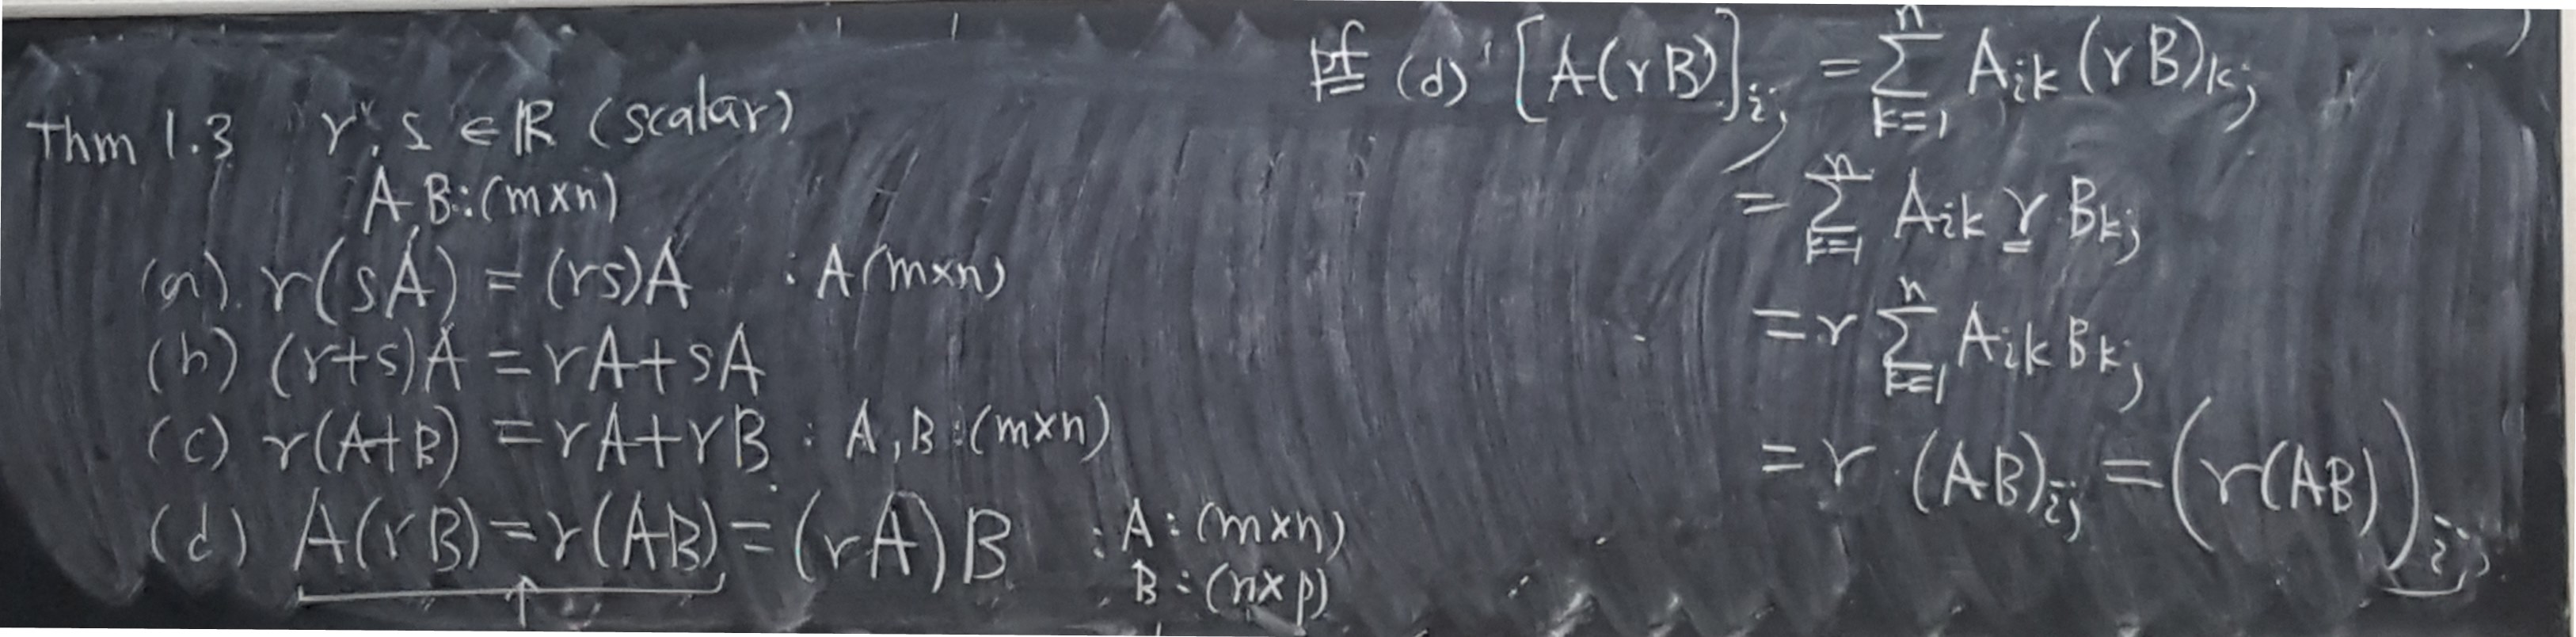 Thm 1.3 r, s ∈ ℝ (scalar)
A, B : (m×n)
(a) r(sA) = (rs)A : A(m×n)
(b) (r+s)A = rA+sA
(c) r(A+B) = rA+rB : A, B : (m×n)
(d) A(rB) = r(AB) = (rA)B : A : (m×n)
B : (n×p)
pf (d) [A(rB)]_{ij} = \sum_{k=1}^{n} A_{ik} (rB)_{kj}
= \sum_{k=1}^{n} A_{ik} r B_{kj}
= r \sum_{k=1}^{n} A_{ik} B_{kj}
= r · (AB)_{ij} = (r(AB))_{ij}